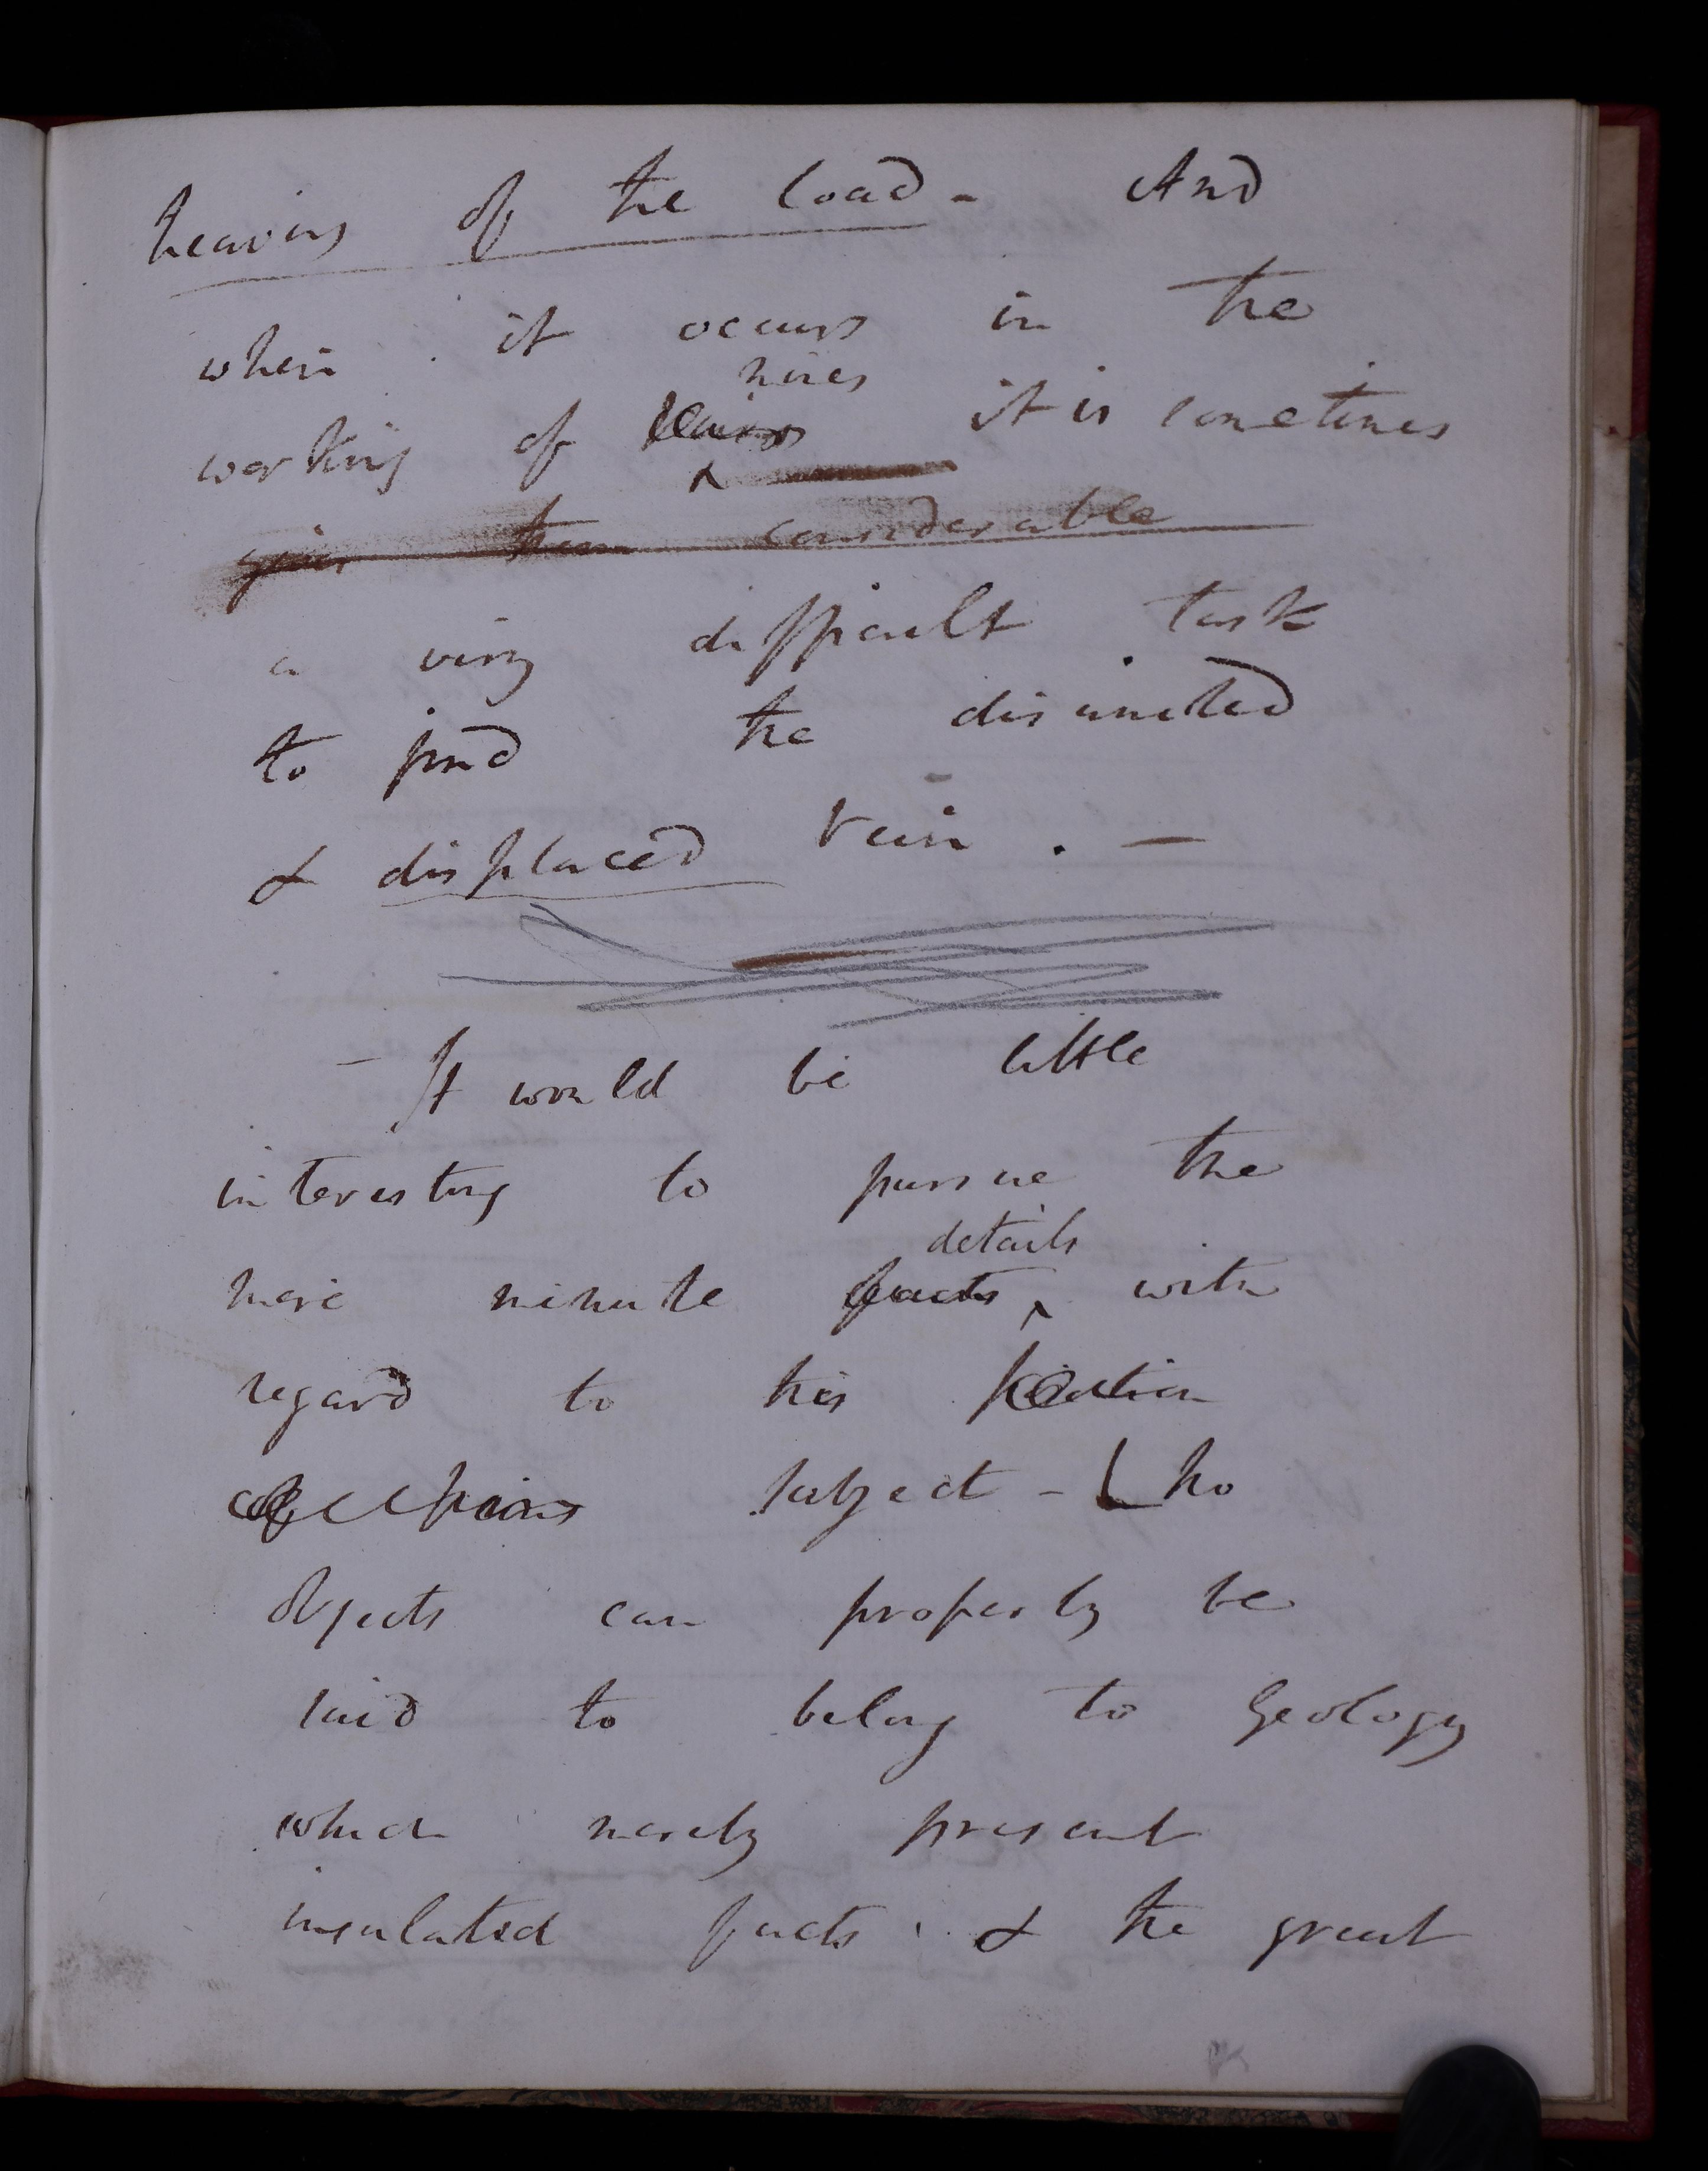 heaving of the load - And
when it occurs in the
mines
working of veins it is sometimes
gives them considerable
a very difficult task
to find the disunited
& displaced vein . —
— It would be little
interesting to pursue the
details
mere minute facts with
regard to this
subject - no
objects can properly be
said to belong to Geology
which merely present
insulated facts . & the great